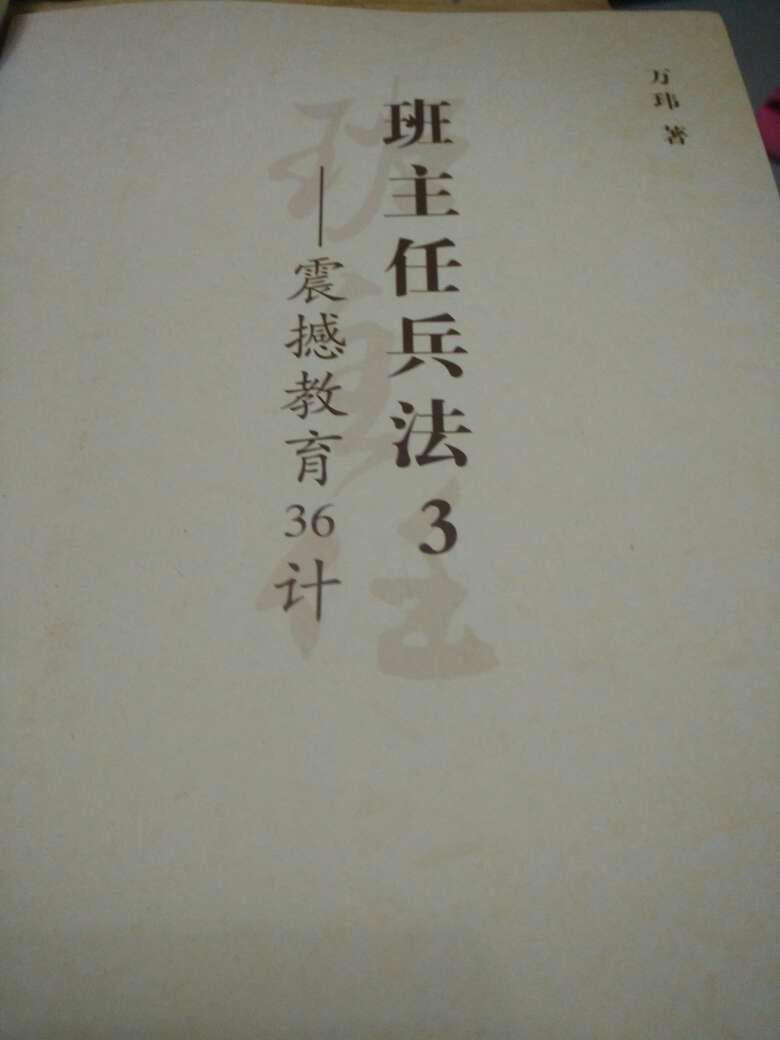 万玮 著
班主任兵法3
——震撼教育36计